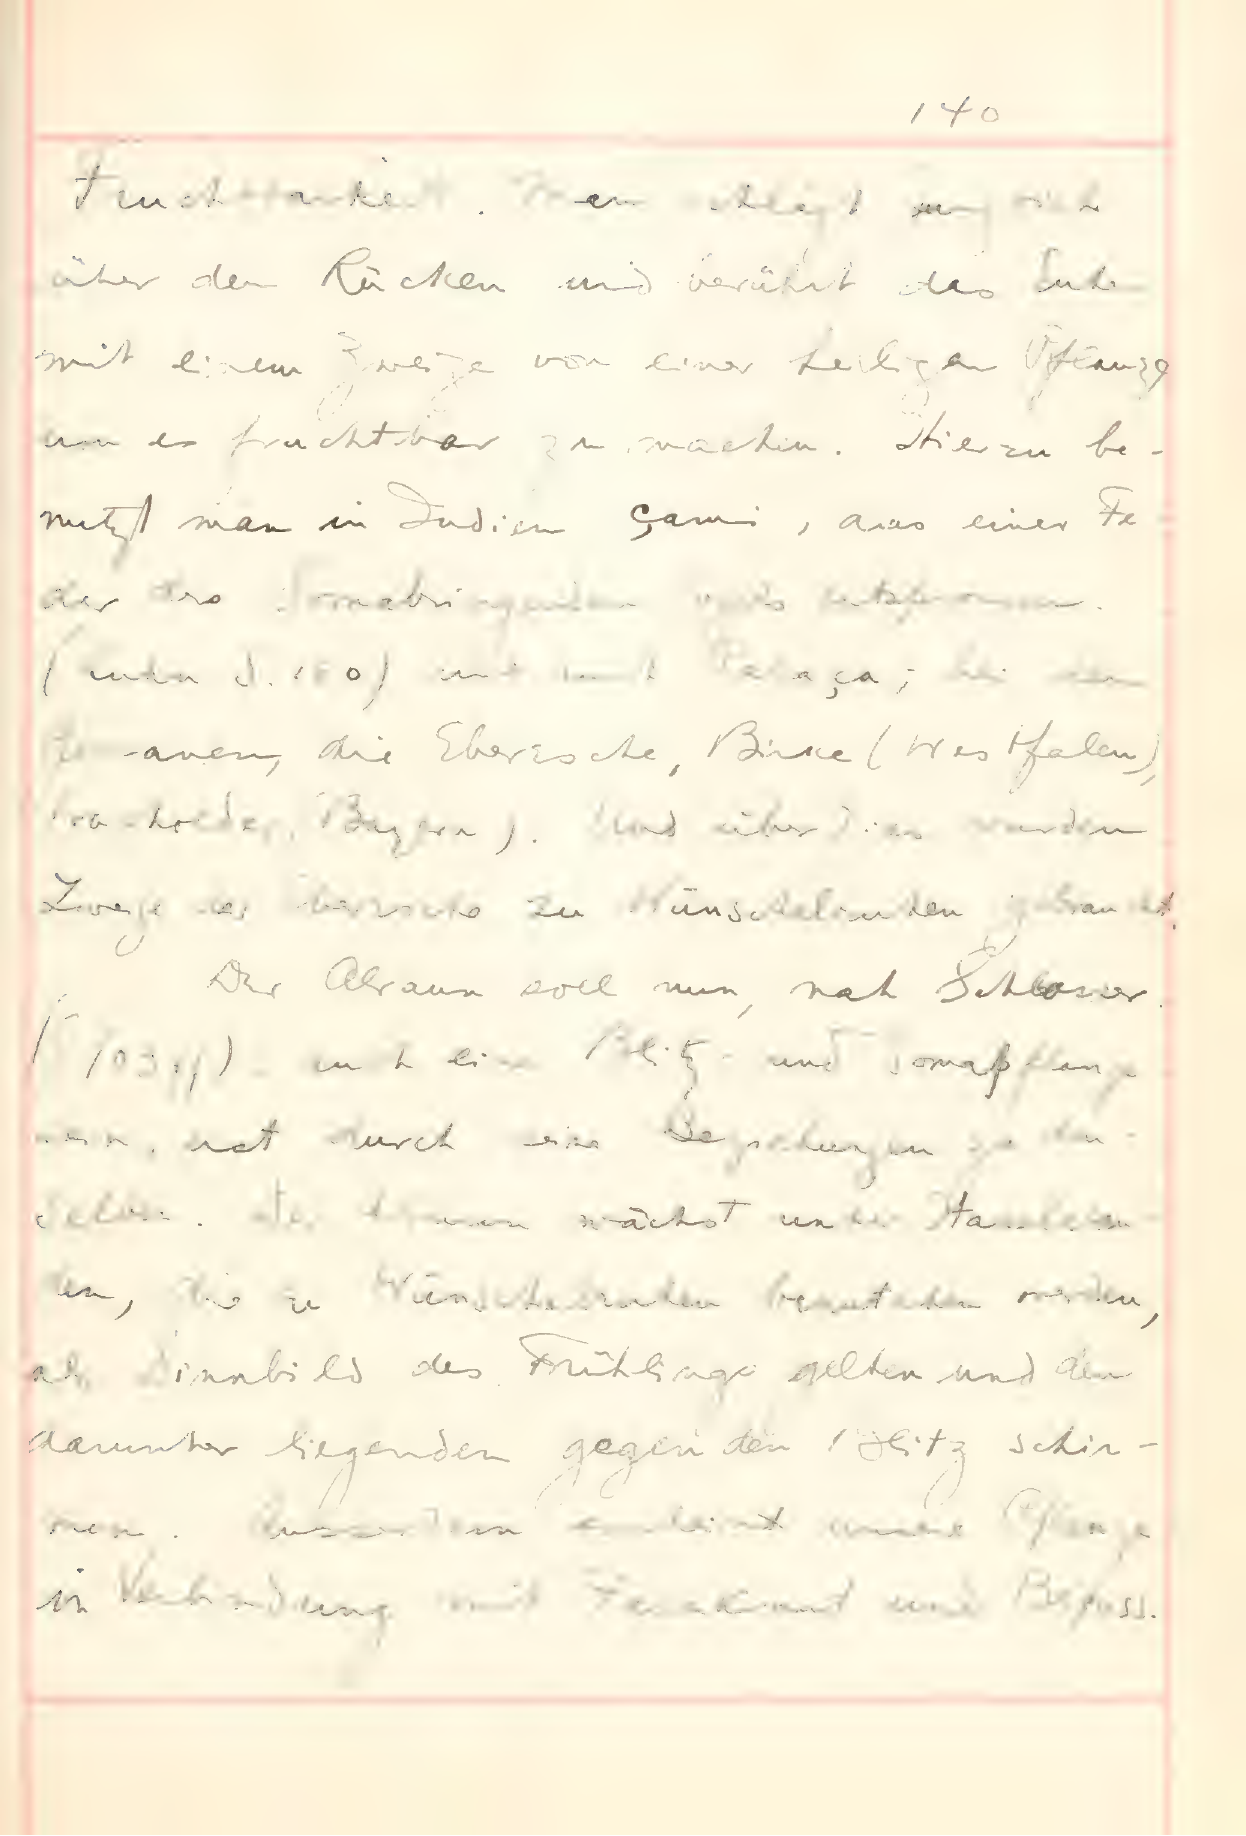 140
Fruchtbarkeit. Man schlägt
über den Rücken und berührt das
mit einem Zweige von einer heiligen Pflanze
um es fruchtbar zu machen. Hierzu be-
nutzt man in Indien çami, aus einer Fe-
der des Somabringenden entsprossen.
und Palaça; bei den
Germanen, die Eberesche, Birke (Westfalen),
Wacholder, (Bayern). Und überdies wurden
Zweige der Eberesche zu Wünschelruten gebraucht.
Der Alraun soll nun, nach Schlosser
103ff) auch eine Blitz- und Somapflanze
sein, durch seine Beziehungen zu den-
selben. Der Alraun wächst unter Haselstau-
den, die zu Wünschelruten werden,
als Sinnbild des Frühlings gelten und den
darunter liegenden gegen den Blitz schir-
men. Ausserdem erscheint unsere Pflanze
in Verbindung mit Farnkraut und Beifuss.